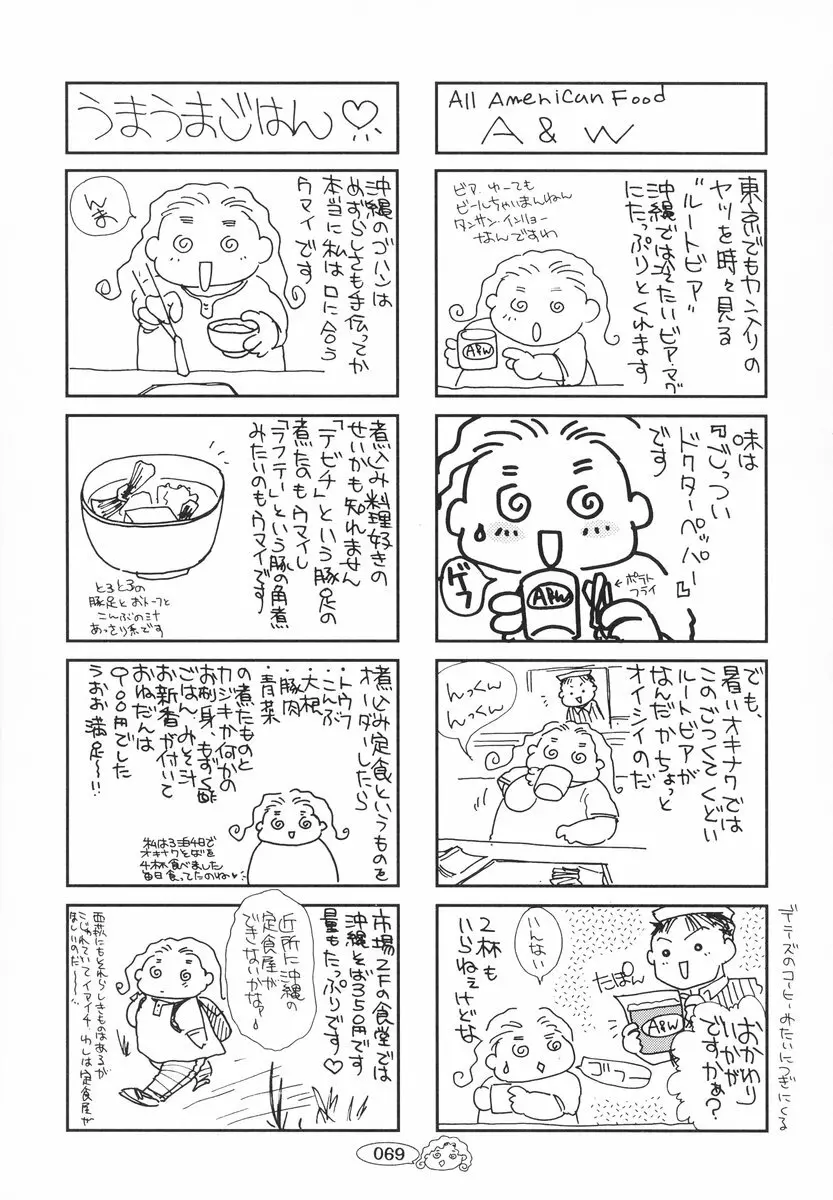 All American Food
A & W
東京でもカン入りの
ヤツを時々見る
"ルートビア"
沖縄では冷たいビア・マグ
にたっぷりとくれます
ビア、ゆーても
ビールちゃいまんねん
タンサン・インリョー
なんですわ
A&W
味は
『ごっつい
ドクターペッパー』
です
ゲフ
←ポテト
フライ
A&W
でも、
暑いオキナワでは
このごつくてくどい
ルートビアが
なんだかちょっと
オイシイのだ
んっくん
んっくん
おかわり
いかが
ですかぁ?
たぽん
A&W
いんない
2杯も
いらねぇけどな
ゴフー
デニーズのコーヒーみたいにつぎにくる
うまうまごはん♡
沖縄のゴハンは
めずらしさも手伝ってか
本当に私は口に合う
ウマイです♡
んま
煮込み料理好きの
せいかも知れません
「テビチ」という豚足の
煮たのもウマイし
「ラフテー」という豚の角煮
みたいのもウマイです
とろとろの
豚足とおトーフと
こんぶの汁
あっさり系です
煮込み定食というものを
オーダーしたら
・トウフ
・こんぶ
・大根
・豚肉
・青菜
の煮たものと
カジキか何かの
お刺身、もずく酢
ごはん、みそ汁
お新香が付いて
おねだんは
900円でした
うおお満足〜!!
私は3泊4日で
オキナワそばを
4杯食べました
毎日食ってたのね♥
市場2Fの食堂では
沖縄そばは350円です
量もたっぷりです♡
近所に沖縄の
定食屋が
できないかなァ
ほしいのだ〜
069